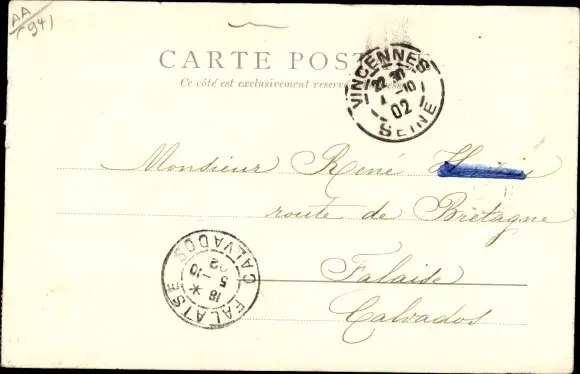 AA
(94)
CARTE POSTALE
Ce côté est exclusivement réservé à l'adresse
VINCENNES
22 30
10
02
SEINE
Monsieur René
route de Bretagne
Falaise
Calvados
FALAISE
18 *
5 -10
02
CALVADOS